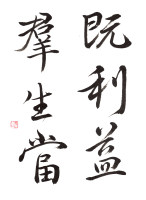 既利益
羣生當